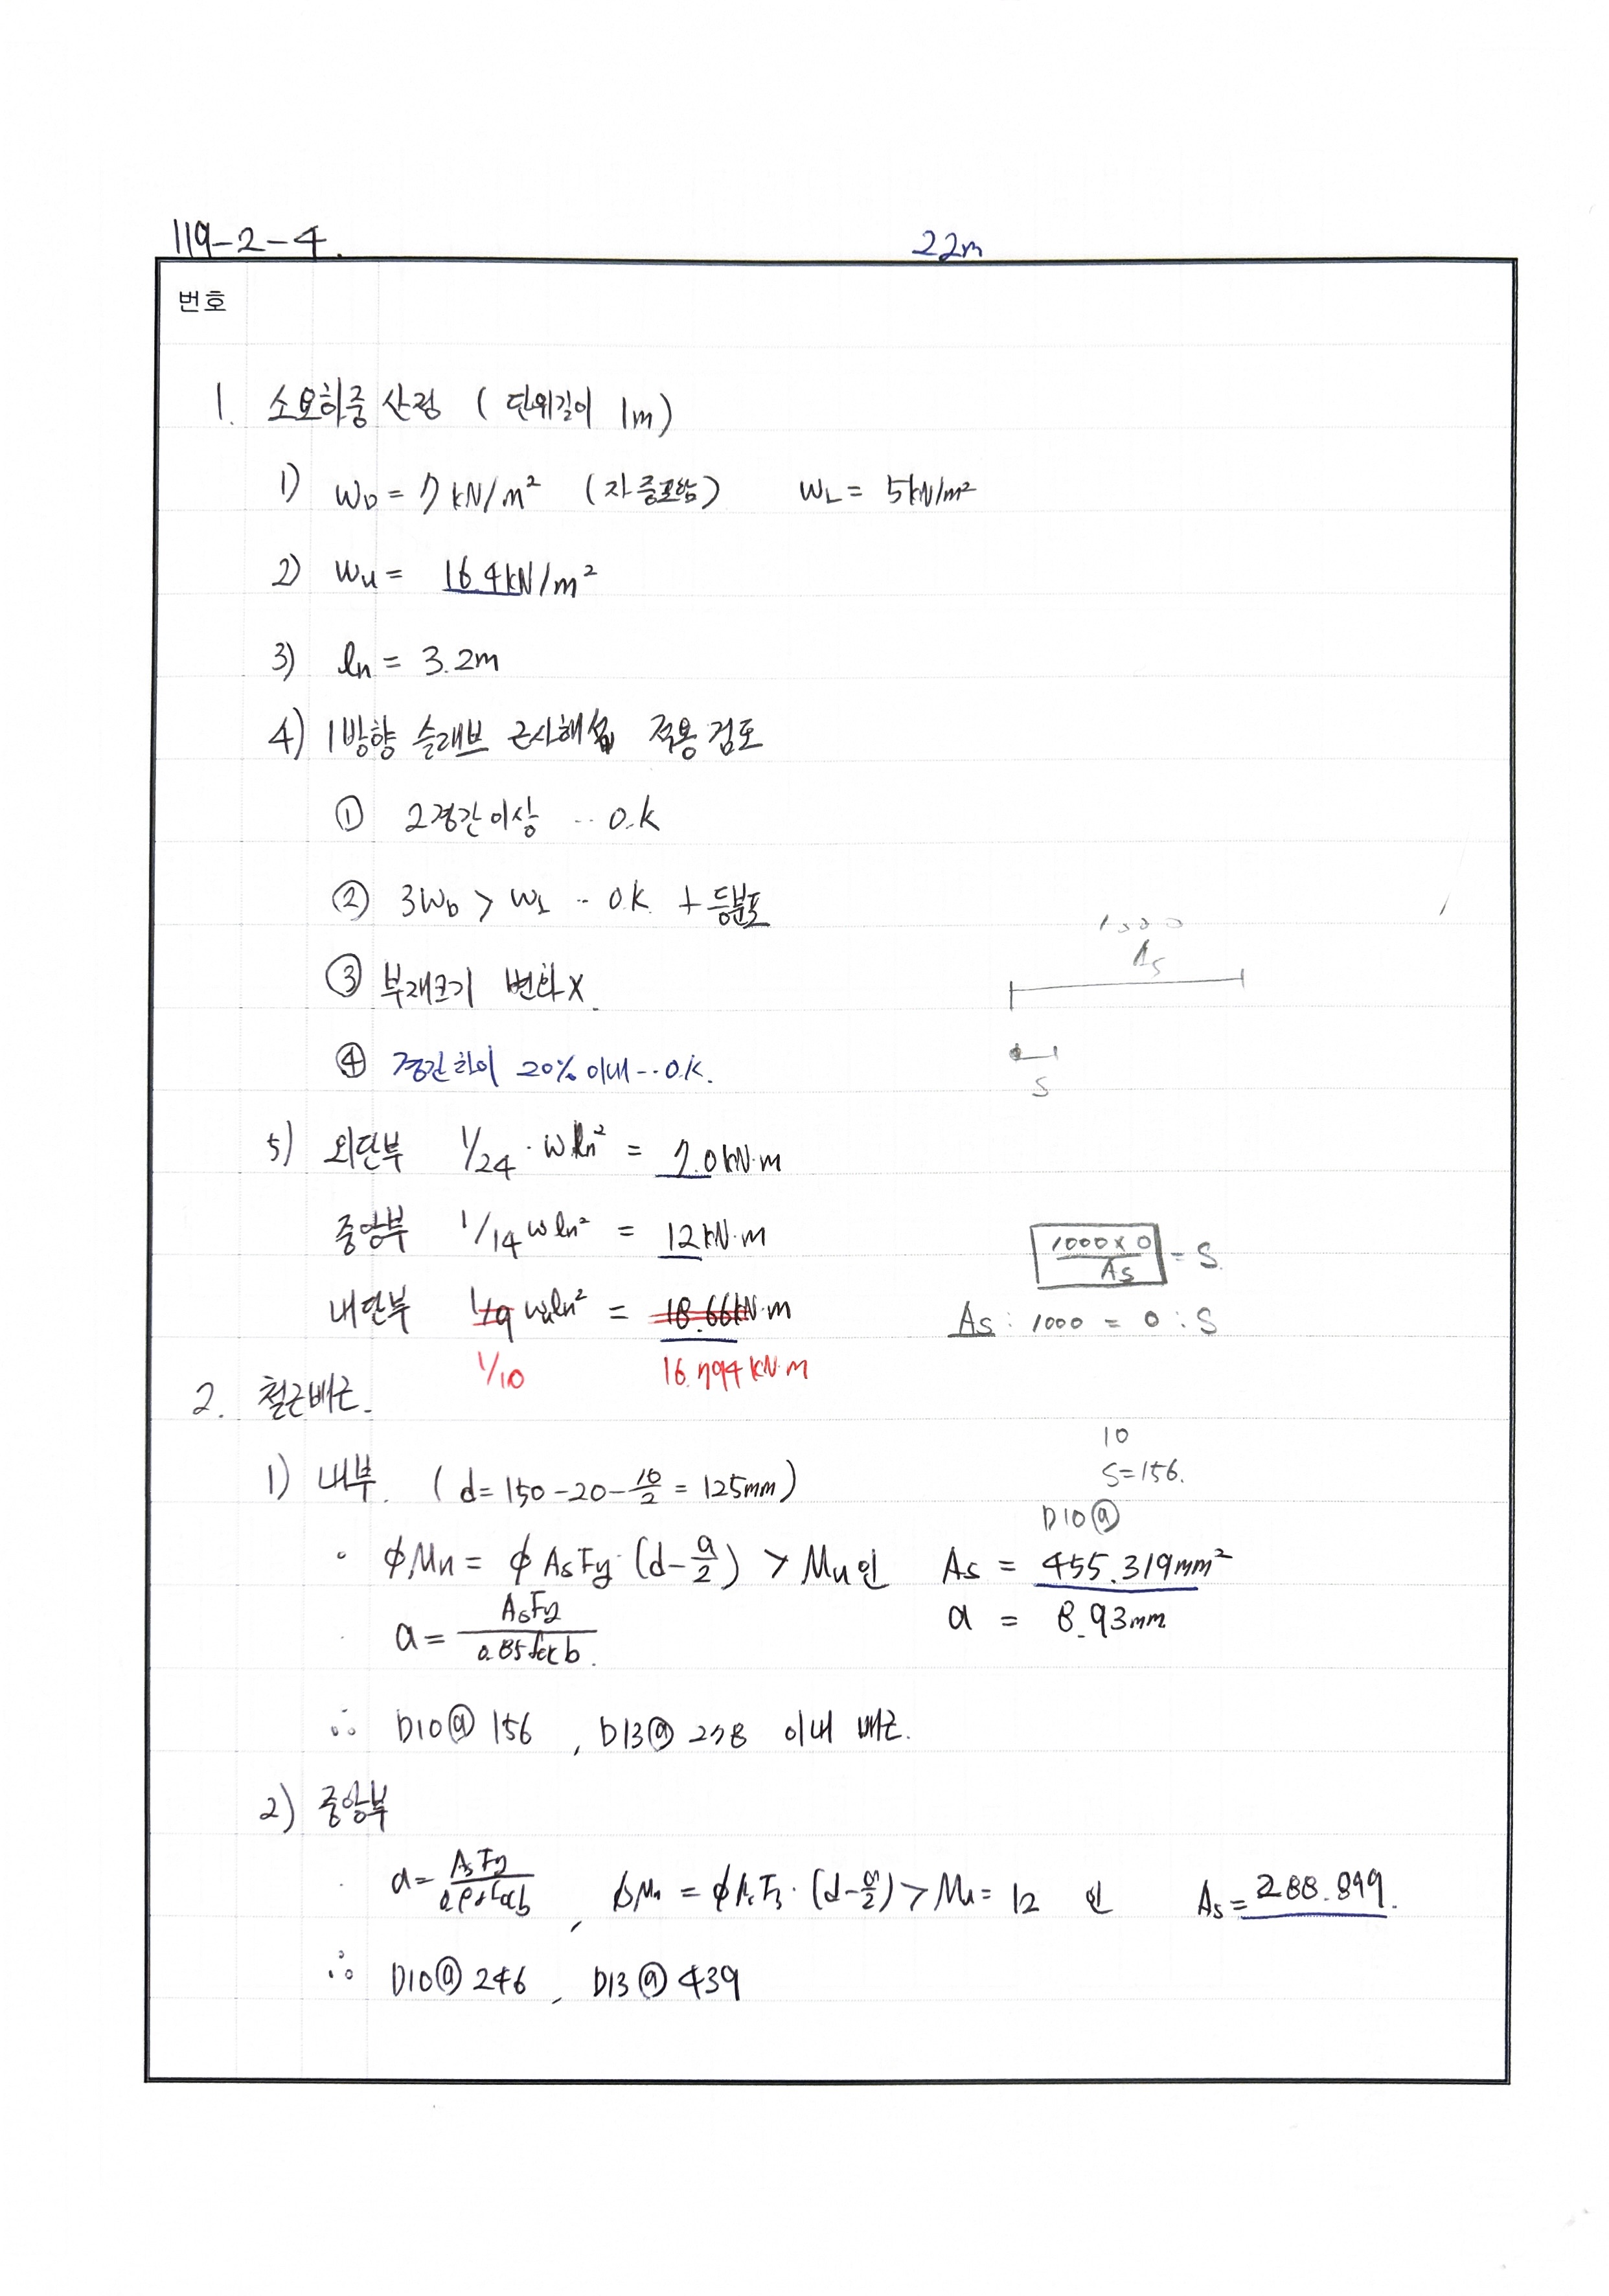 119-2-4.
22m
번호
1. 소요하중 산정 ( 단위길이 1m)
1) WD = 7 kN/m² (자중포함) WL = 5kN/m²
2) Wu = 16.4kN/m²
3) ln = 3.2m
4) 1방향 슬래브 근사해석 적용 검토
① 2경간이상 ·· O.K
② 3WD > WL ·· O.K. + 등분포
1000
As
③ 부재크기 변화X.
④ 경간차이 20% 이내 -·· O.K.
S
5) 외단부 1/24 · wln² = 7.0kN·m
중앙부 1/14 wln² = 12kN·m
1000 x 0 / As = S.
내단부 1/9 wuln² = 18.66kN·m
As : 1000 = 0 : S
1/10 16.794 kN·m
2. 철근배근.
10
S=156.
1) 내부. ( d = 150 - 20 - 10/2 = 125mm )
D10@
◦ ϕMn = ϕ AsFy · (d - a/2) > Mu인 As = 455.319mm²
· a = AsFy / 0.85fck b. a = 8.93mm
∴ D10@ 156 , D13@ 278 이내 배근.
2) 중앙부
· a = AsFy / 0.85fckb , ϕMn = ϕAsFy · (d - a/2) > Mu = 12 인 As = 288.899.
∴ D10@ 246 , D13@ 439